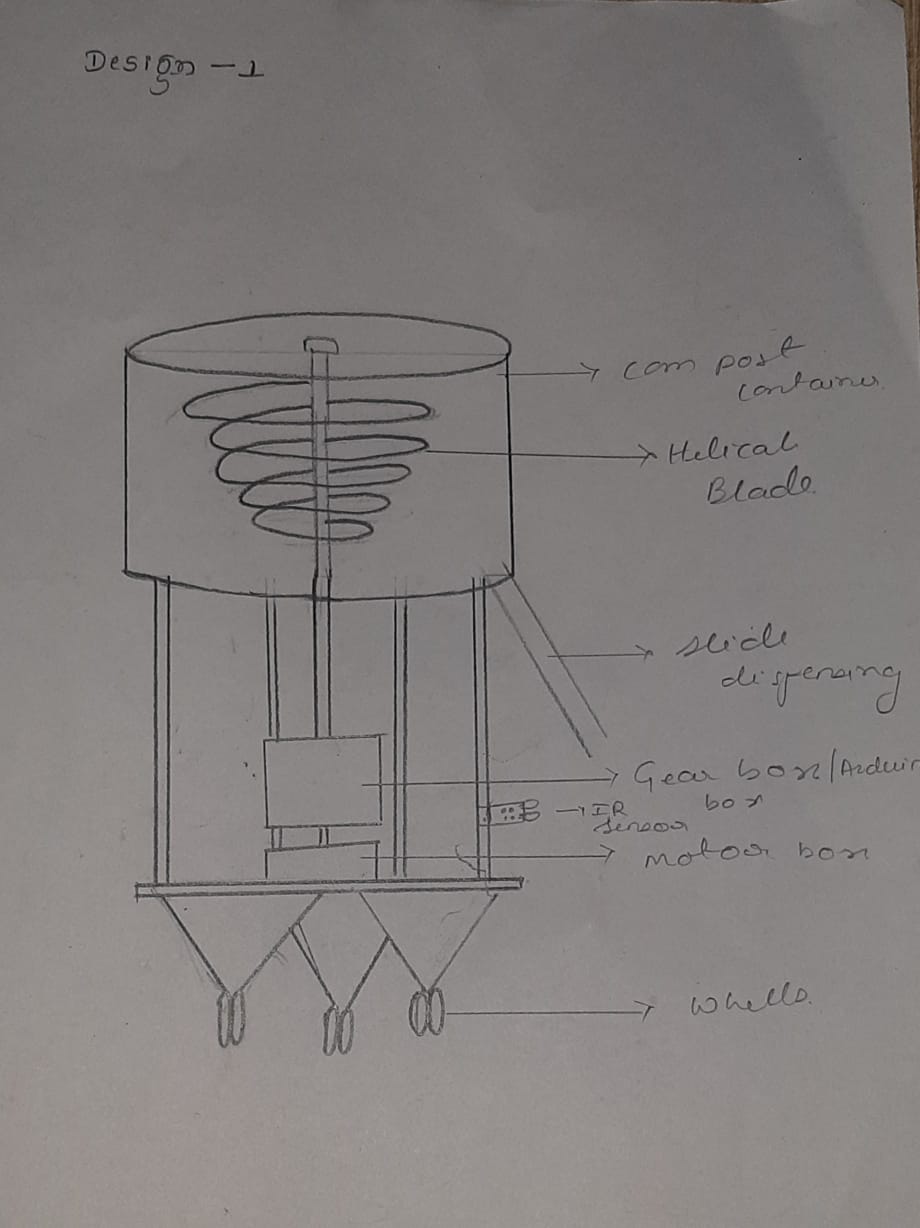 Design - 1
com post
container
Helical
Blade
slide
dispensing
Gear box/Arduin
box
IR
sensor
motor box
Whells